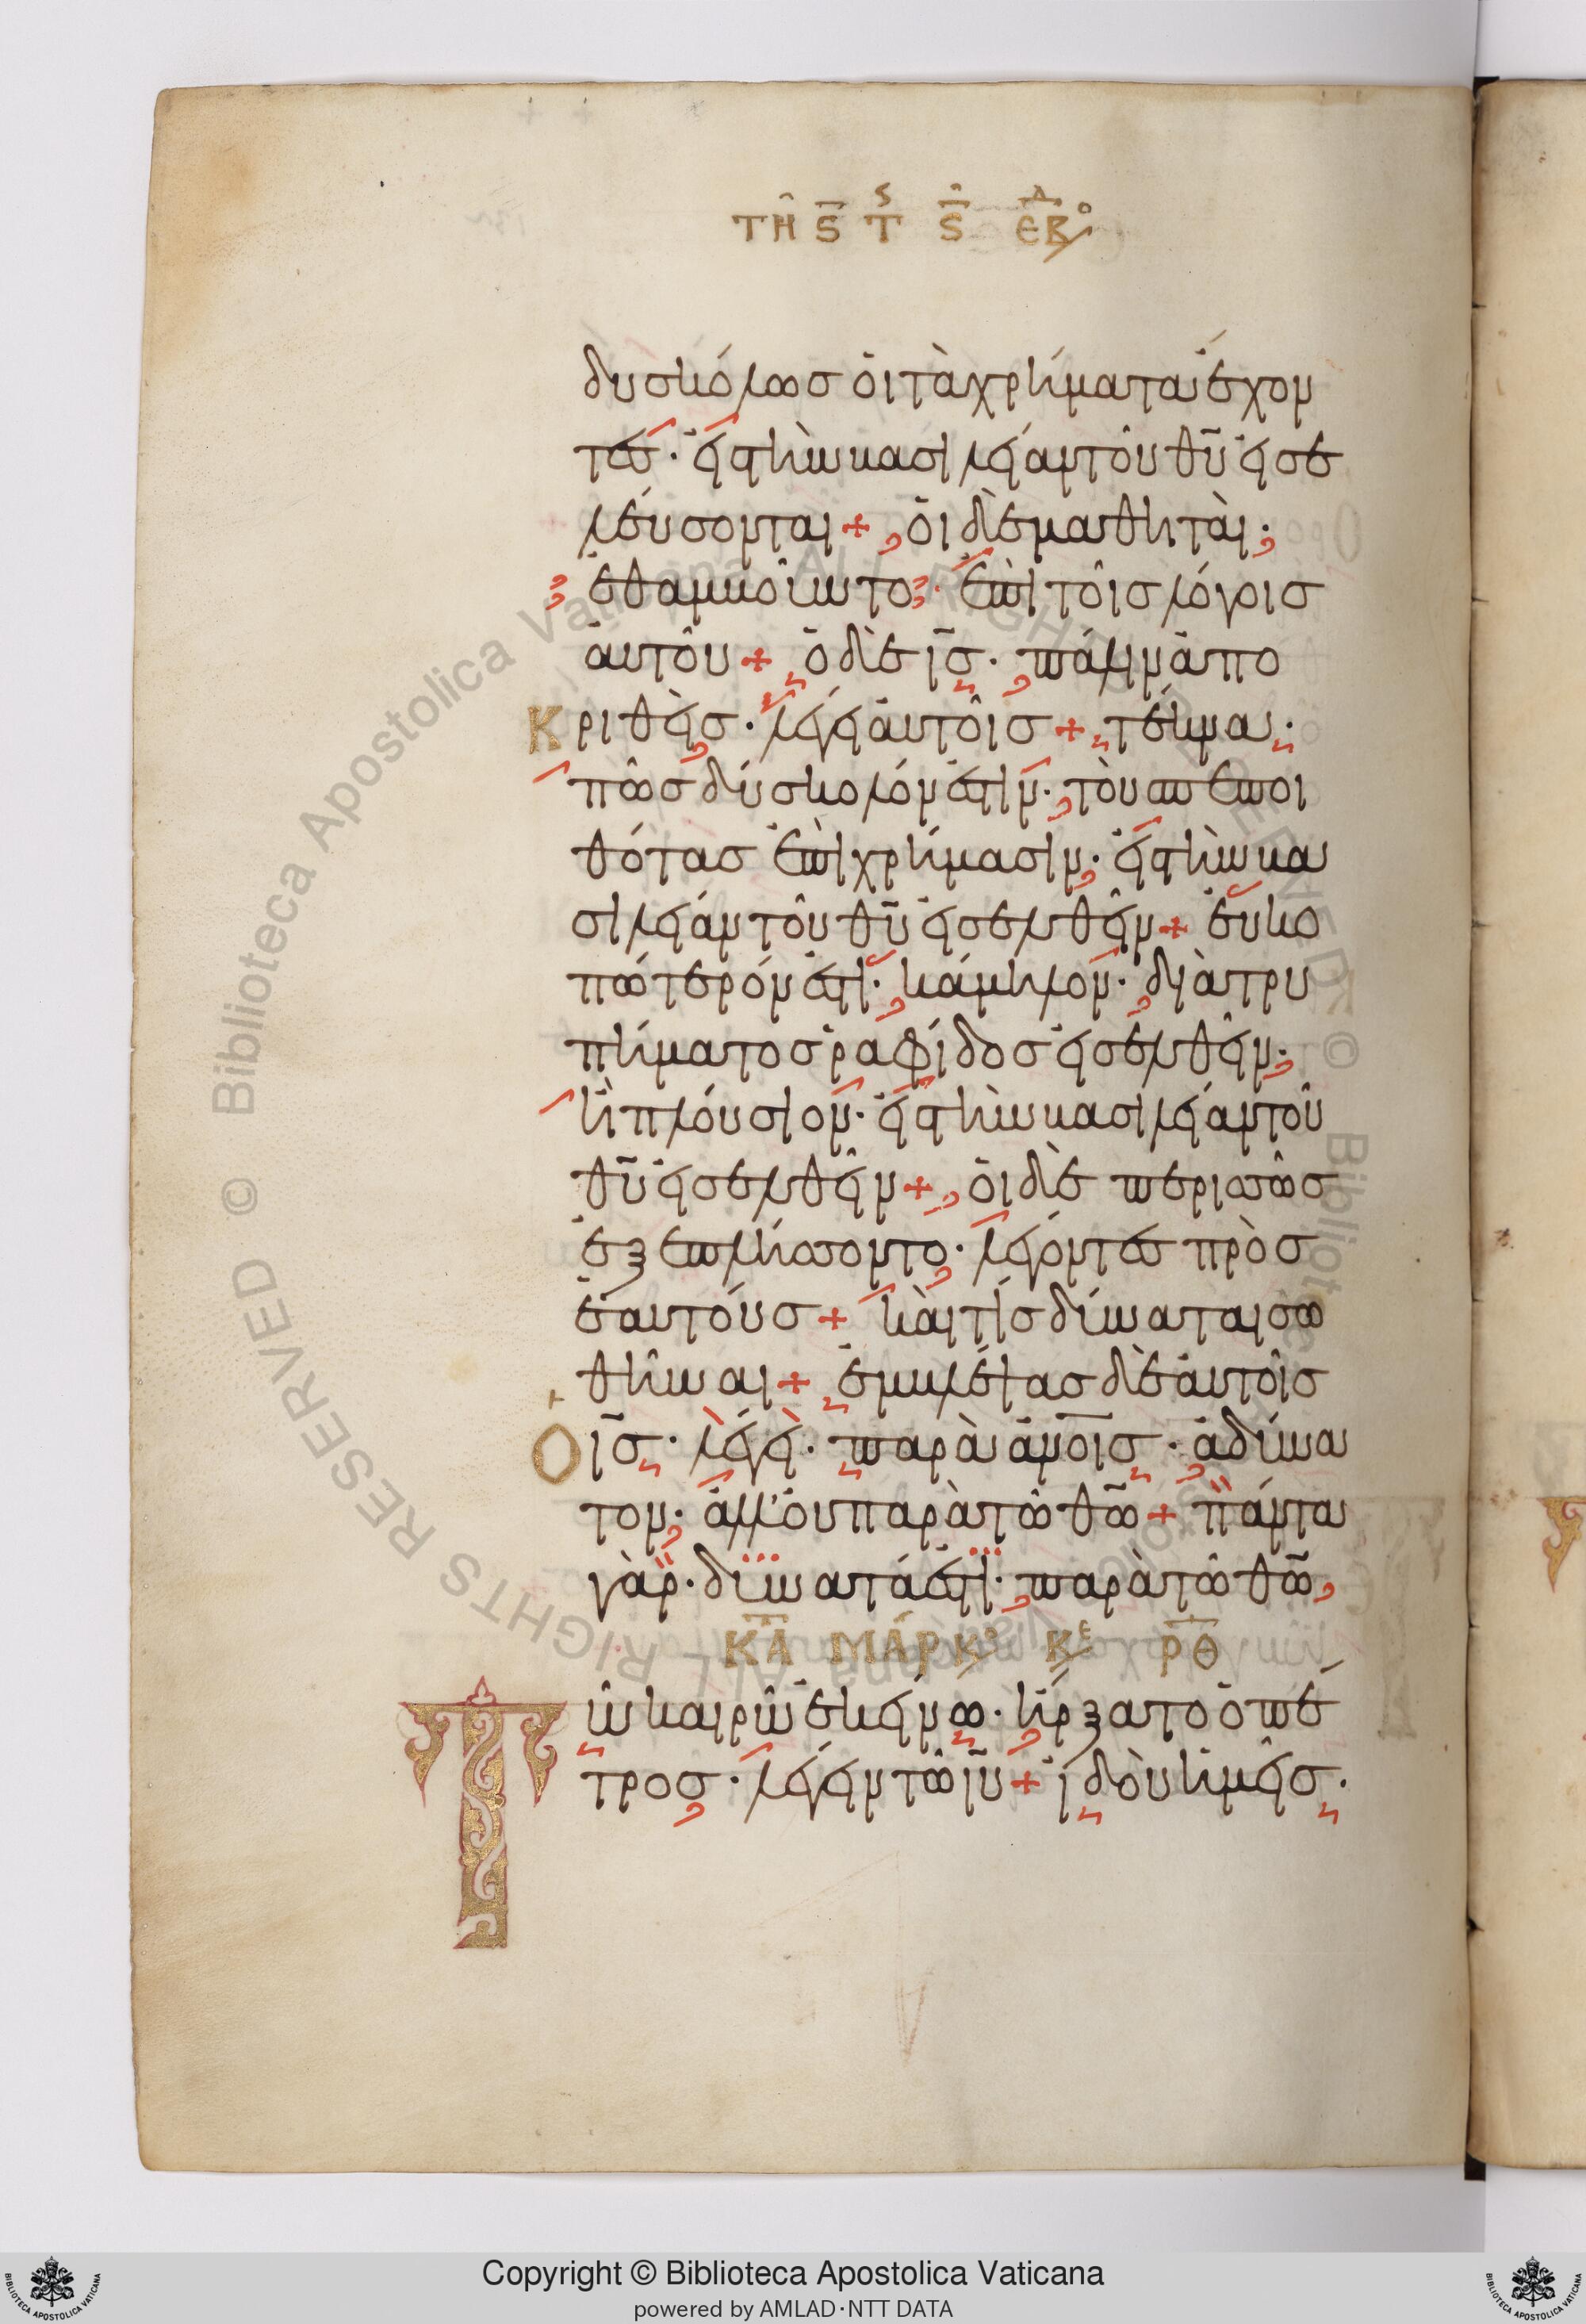 ΤΗ Ϛ Τ Ϛ Ϛ ΕΒΔο
δυσκόλως ὁι τὰ χρήματα ἔχον
τες· εἰς τὴν βασιλείαν τοῦ θυ εἰσε
λεύσονται + ὁι δὲ μαθηταὶ·
ἐθαμβοῦντο· ἐπὶ τοῖς λόγοις
ἀυτοῦ + ὁ δὲ ις· πάλιν ἀπο
Κριθεὶς· λέγει ἀυτοῖς + τέκνα·
πῶς δύσκολόν ἐστιν· τοὺς πεποι
θότας ἐπὶ χρήμασιν· εἰς τὴν βα
σιλείαν τοῦ θυ εἰσελθεῖν + ἐυκο
πώτερόν ἐστι· κάμηλον· διὰ τρυ
πήματος ῥαφίδος εἰσελθεῖν·
ἢ πλούσιον· εἰς τὴν βασιλείαν τοῦ
θυ εἰσελθεῖν + ὁι δὲ περισσῶς
ἐξεπλήσσοντο· λέγοντες πρὸς
ἑαυτούς + καὶ τίς δύναται σω
θῆναι + ἐμβλέψας δὲ ἀυτοῖς
Ο ις· λέγει· παρὰ ανοις· ἀδύνα
τον· ἀλλ' ὀυ παρὰ τῶ θω + πάντα
γὰρ· δυνατά ἐστι· παρὰ τῶ θω
ΚΑΤΑ ΜΑΡΚο ΚΕ ΡΘ
Τῶ καιρῶ ἐκείνω· ἤρξατο ὁ πέ
τρος· λέγειν τῶ ιυ + ἰδοὺ ἡμεῖς·
Copyright © Biblioteca Apostolica Vaticana
powered by AMLAD·NTT DATA